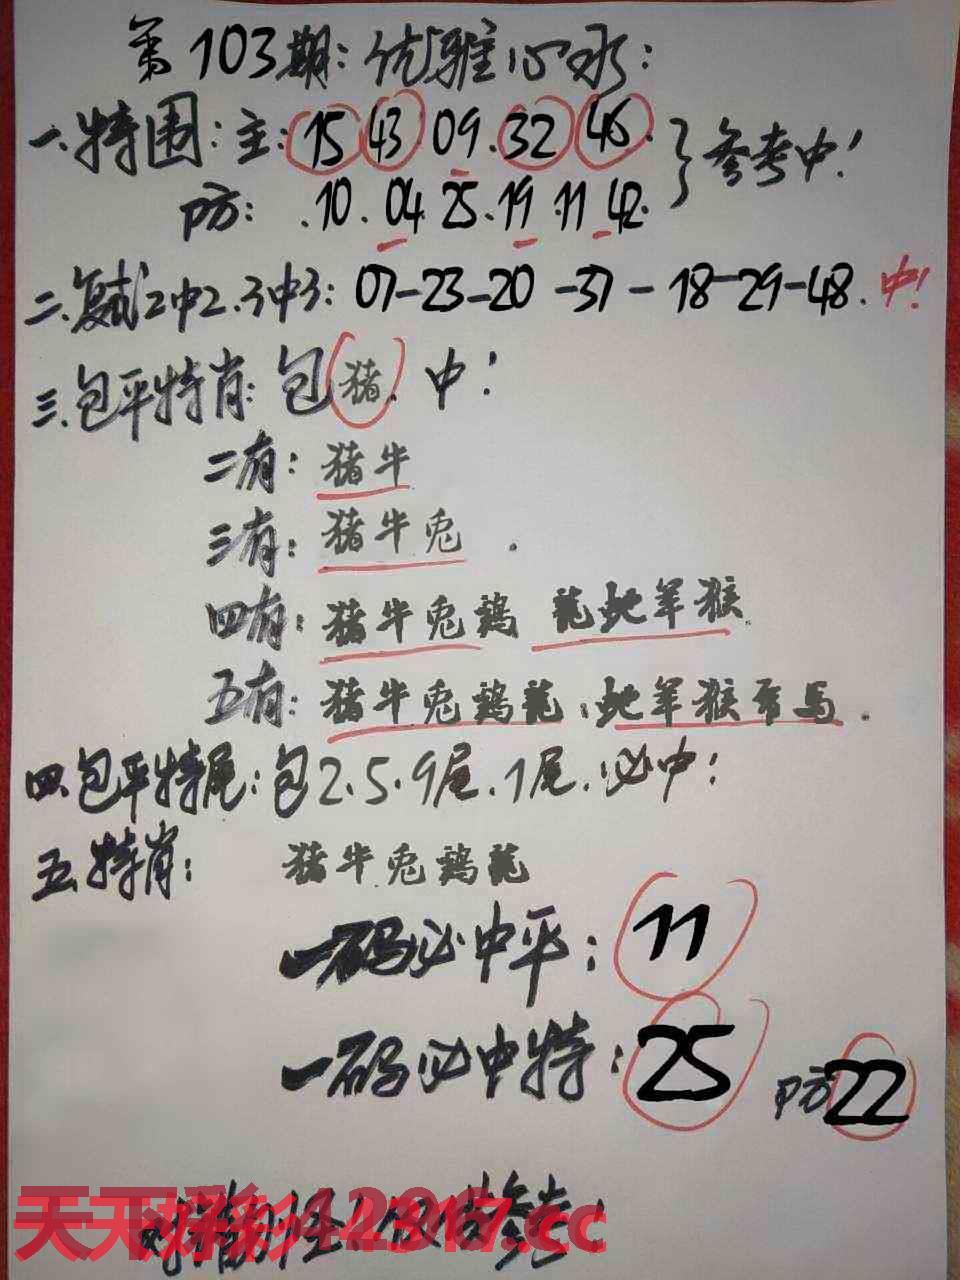 第103期：优雅心水：
一.特围：主：15 43 09.32 46. }参考中！
防：.10.04 25.19.11 42.
二.复式2中2.3中3：07-23-20-37-18-29-48.中！
三.包平特肖：包猪.中！
二有：猪牛
三有：猪牛兎.
四有：猪牛兎鷄 龍蛇羊猴
五有：猪牛兎鷄龍；蛇羊猴秀马.
四.包平特尾：包2.5.9尾.1尾.必中：
五.特肖：猪牛.兎鷄龍
一码必中平：11
一码必中特：25 防22
天天 .cc
参考！